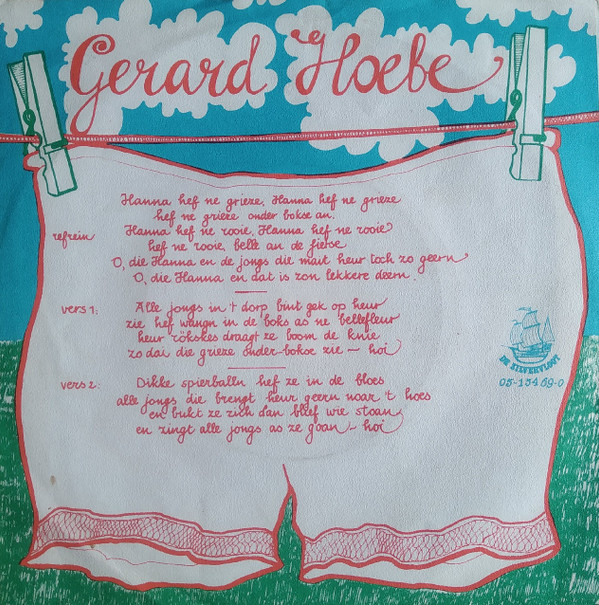 Gerard Hoebe
Hanna hef ne grieze, Hanna hef ne grieze
hef ne grieze onder bokse an.
refrein Hanna hef ne rooie, Hanna hef ne rooie
hef ne rooie, belle an de fietse
O, die Hanna en de jongs die mait heur toch zo geern
O, die Hanna en dat is zon lekkere deern.
vers 1: Alle jongs in 't dorp bint gek op heur
zie hef wangn in de boks as ne bellefleur
heur rökskes draagt ze boom de knie
zo dai die grieze onder-bokse zie - hoi
vers 2: Dikke spierballn hef ze in de bloes
alle jongs die brengt heur geern noar 't hoes
en bukt ze zich dan blief wie stoan
en zingt alle jongs as ze goan - hoi
DE ZILVERVLOOT
05-15469-0